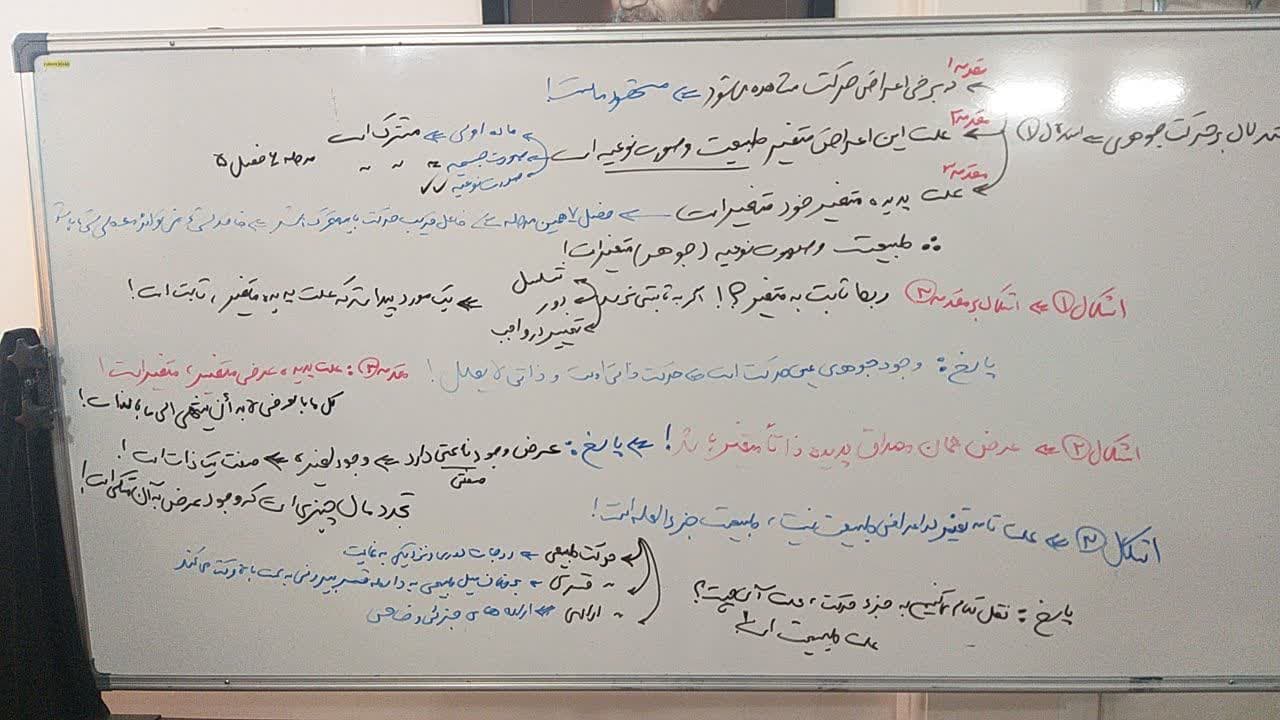 مقدمه ۱
در برخی اعراض حرکت مشاهده می‌شود ⇐ مشهود ماست!
استدلال بر حرکت جوهری ⇐ استدلال ①
مقدمه ۲
علت این اعراض متغیر طبیعت و صورت نوعیه است
ماده اولی ⇐ مشترک است
صورت جسمیه ⇐ 〃 〃
صورت نوعیه ✓✓
مرحله ۶ فصل ۵
مقدمه ۳
علت پدیده متغیر خود متغیر است ⇐ فصل ۷ همین مرحله ⇐ فاعل قریب حرکت باید متحرک باشد ⇐
∴ طبیعت و صورت نوعیه (جوهر) متغیر است!
اشکال ① ⇐ اشکال بر مقدمه ③ ربط ثابت به متغیر؟! اگر به ثابتی نرسد
تسلسل
دور
تغییر در واجب
⇐ یک مورد پیدا شد که علت پدیده متغیر، ثابت است!
پاسخ: وجود جوهری عین حرکت است حرکت ذاتی اوست و ذاتی لا یعلل!
مقدمه ③: علت پدیده عرضی متغیر، متغیر است!
کل ما بالعرض لابد أن ینتهی الی ما بالذات!
اشکال ② ⇐ عرض همان مصداق پدیده ذاتاً متغیر باشد! ⇐ پاسخ: عرض وجود ناعتی دارد ⇐ وجود لغیره ⇐ صفت یک ذات است!
صفتی
تجدد مال چیزی است که وجود عرض به آن متکی است!
اشکال ③ ⇐ علت تامه تغییر در اعراض طبیعت نیست، طبیعت جزء العله است!
حرکت طبیعی ⇐ درجات دوری و نزدیکی به غایت
〃 قسری ⇐
〃 ارادی ⇐ اراده های جزئی و خاص
پاسخ: نقل کلام می‌کنیم به جزء حرکت، علت آن چیست؟
علت طبیعت است!